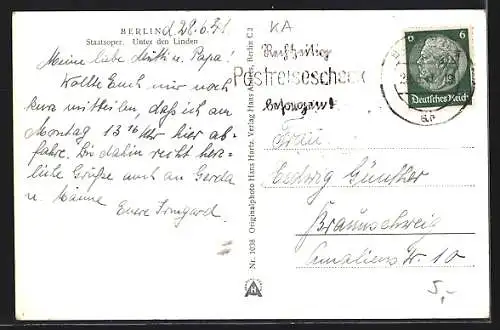 BERLIN d. 28.6.41
Staatsoper. Unter den Linden
Meine liebe Mutti u. Papa!
Wollte Euch nur noch
kurz mitteilen, daß ich am
Montag 13 16 Uhr hier ab-
fahre. Bis dahin recht herz-
liche Grüße auch an Gerda
u. Männe Eure Irmgard.
Nr. 1038 Originalphoto Hans Hartz, Verlag Hans Andres, Berlin C 2
KA
Rechtzeitig
Postreisescheck
besorgen!
6
Deutsches Reich
Frau
Hedwig Günther
Braunschweig
Amalienstr. 10
5,-